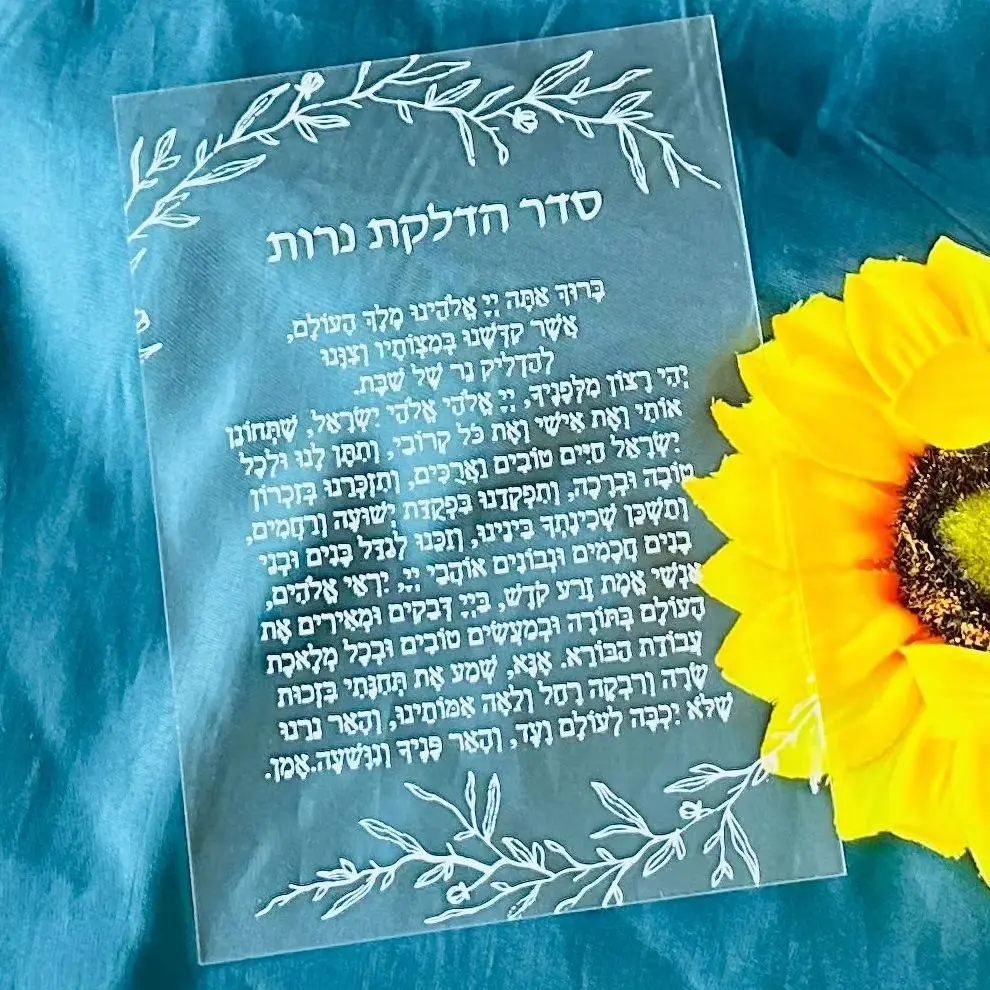 סדר הדלקת נרות
בָּרוּךְ אַתָּה יְיָ אֱלֹהֵינוּ מֶלֶךְ הָעוֹלָם,
אֲשֶׁר קִדְּשָׁנוּ בְּמִצְוֹתָיו וְצִוָּנוּ
לְהַדְלִיק נֵר שֶׁל שַׁבָּת.
יְהִי רָצוֹן מִלְּפָנֶיךָ, יְיָ אֱלֹהַי אֱלֹהֵי יִשְׂרָאֵל, שֶׁתְּחוֹנֵן
אוֹתִי וְאֶת אִישִׁי וְאֶת כֹּל קְרוֹבַי, וְתִתֵּן לָנוּ וּלְכָל
יִשְׂרָאֵל חַיִּים טוֹבִים וַאֲרֻכִּים, וְתִזְכְּרֵנוּ בְּזִכְרוֹן
טוֹבָה וּבְרָכָה, וְתִפְקְדֵנוּ בִּפְקֻדַּת יְשׁוּעָה וְרַחֲמִים,
וְתַשְׁכֵּן שְׁכִינָתְךָ בֵּינֵינוּ, וְזַכֵּנוּ לְגַדֵּל בָּנִים וּבְנֵי
בָנִים חֲכָמִים וּנְבוֹנִים אוֹהֲבֵי יְיָ, יִרְאֵי אֱלֹהִים,
אַנְשֵׁי אֱמֶת זֶרַע קֹדֶשׁ, בַּייָ דְּבֵקִים וּמְאִירִים אֶת
הָעוֹלָם בַּתּוֹרָה וּבְמַעֲשִׂים טוֹבִים וּבְכָל מְלֶאכֶת
עֲבוֹדַת הַבּוֹרֵא. אָנָּא, שְׁמַע אֶת תְּחִנָּתִי בִּזְכוּת
שָׂרָה וְרִבְקָה רָחֵל וְלֵאָה אִמּוֹתֵינוּ, וְהָאֵר נֵרֵנוּ
שֶׁלֹּא יִכְבֶּה לְעוֹלָם וָעֶד, וְהָאֵר פָּנֶיךָ וְנִוָּשֵׁעָה.אָמֵן.